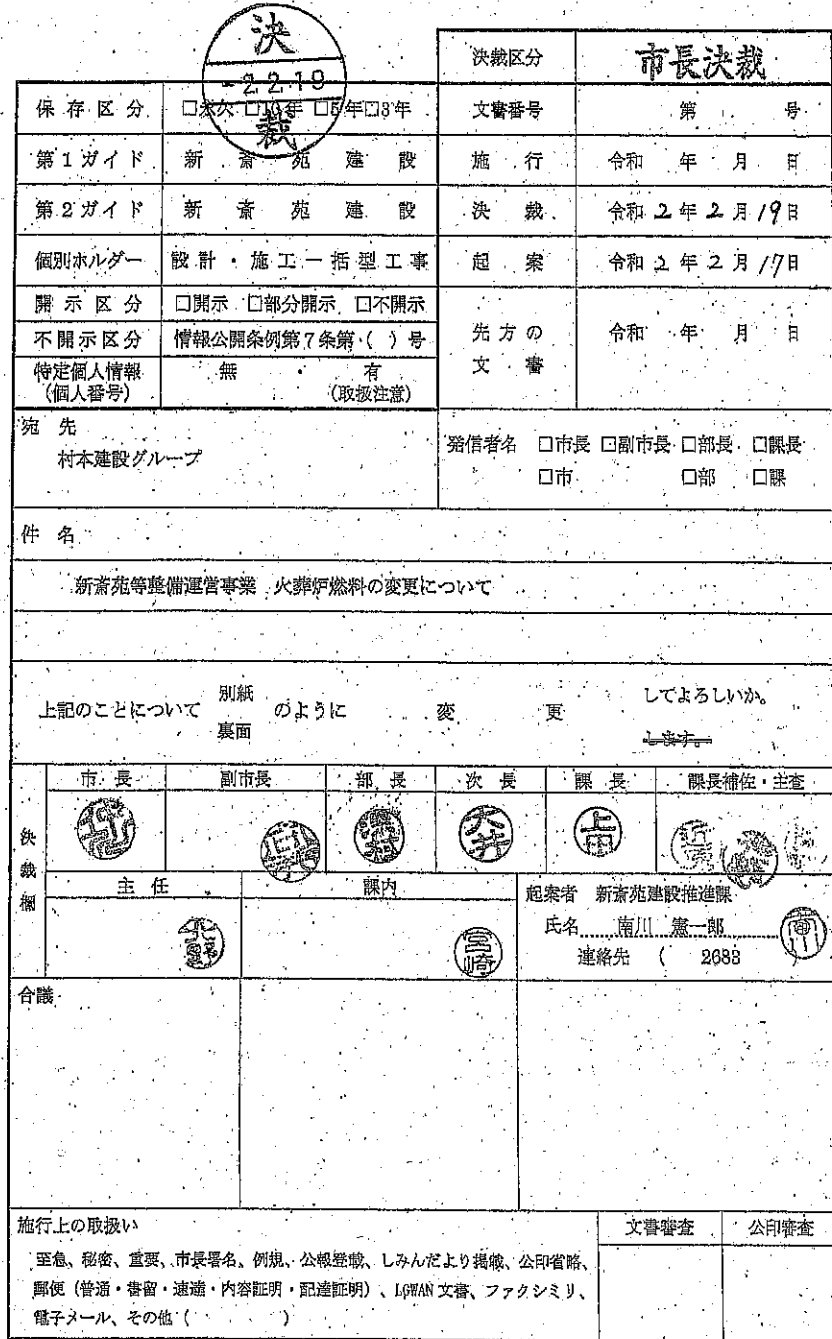 決
-2.2.19
裁
決裁区分 市長決裁
保存区分 □永久 □10年 □5年 □3年
文書番号 第 号
第1ガイド 新斎苑建設
施行 令和 年 月 日
第2ガイド 新斎苑建設
決裁 令和2年2月19日
個別ホルダー 設計・施工一括型工事
起案 令和2年2月17日
開示区分 □開示 □部分開示 □不開示
不開示区分 情報公開条例第7条第( )号
先方の文書 令和 年 月 日
特定個人情報(個人番号) 無 ・ 有(取扱注意)
宛先
村本建設グループ
発信者名 □市長 □副市長 □部長 □課長
□市 □部 □課
件名
新斎苑等整備運営事業 火葬炉燃料の変更について
上記のことについて 別紙 裏面 のように 変更 してよろしいか。
します。
決裁欄
市長 副市長 部長 次長 課長 課長補佐・主査
大井 上田
主任 課内
宮崎
起案者 新斎苑建設推進課
氏名 南川 憲一郎
南川
連絡先 ( 2683 )
合議
施行上の取扱い
文書審査 公印審査
至急、秘密、重要、市長署名、例規、公報登載、しみんだより掲載、公印省略、
郵便(普通・書留・速達・内容証明・配達証明)、LGWAN文書、ファクシミリ、
電子メール、その他( )